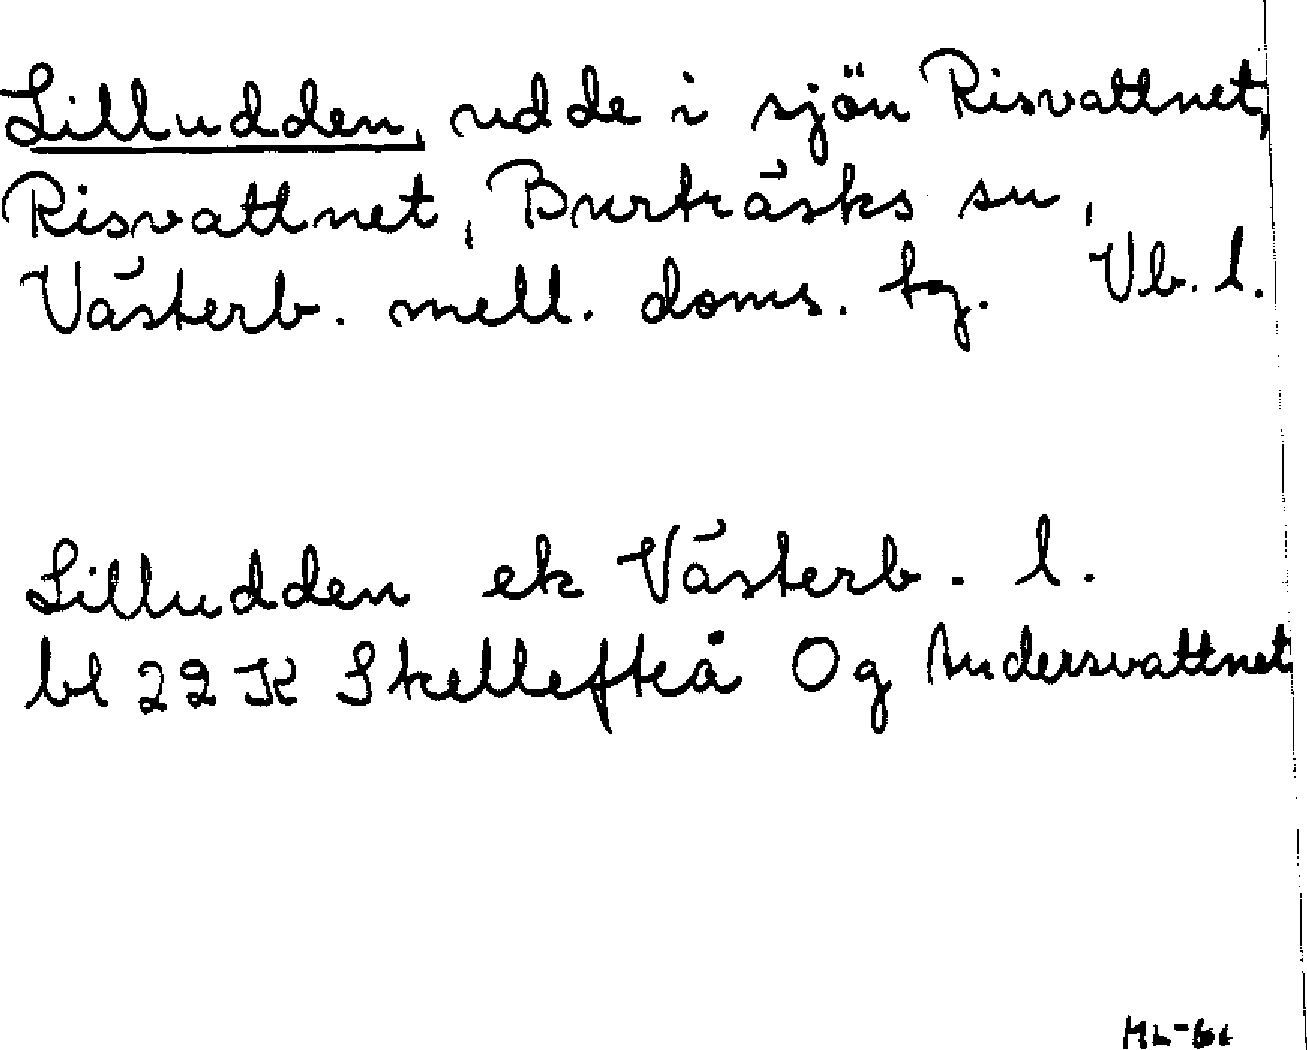 Lilludden, udde i sjön Risvattnet,
Risvattnet, Burträsks sn,
Västerb. mell. doms. tg. Vb. l.
Lilludden ek Västerb. l.
bl 22 K Skellefteå Og Andersvattnet